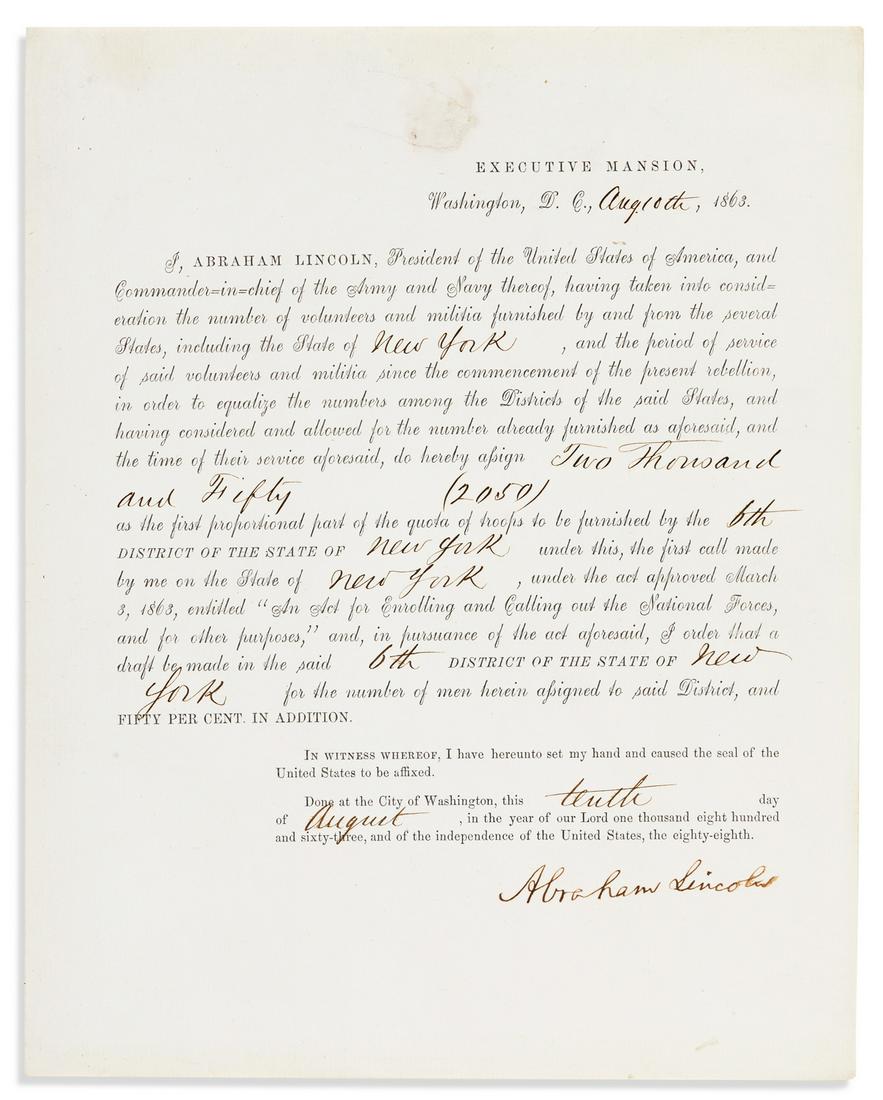 EXECUTIVE MANSION,
Washington, D. C., Aug 10th, 1863.
I, ABRAHAM LINCOLN, President of the United States of America, and
Commander=in=chief of the Army and Navy thereof, having taken into consid=
eration the number of volunteers and militia furnished by and from the several
States, including the State of New York , and the period of service
of said volunteers and militia since the commencement of the present rebellion,
in order to equalize the numbers among the Districts of the said States, and
having considered and allowed for the number already furnished as aforesaid, and
the time of their service aforesaid, do hereby aſsign Two Thousand
and Fifty (2050)
as the first proportional part of the quota of troops to be furnished by the 6th
DISTRICT OF THE STATE OF New York under this, the first call made
by me on the State of New York , under the act approved March
3, 1863, entitled "An Act for Enrolling and Calling out the National Forces,
and for other purposes," and, in pursuance of the act aforesaid, I order that a
draft be made in the said 6th DISTRICT OF THE STATE OF New
York for the number of men herein aſsigned to said District, and
FIFTY PER CENT. IN ADDITION.
IN WITNESS WHEREOF, I have hereunto set my hand and caused the seal of the
United States to be affixed.
Done at the City of Washington, this tenth day
of August , in the year of our Lord one thousand eight hundred
and sixty-three, and of the independence of the United States, the eighty-eighth.
Abraham Lincoln